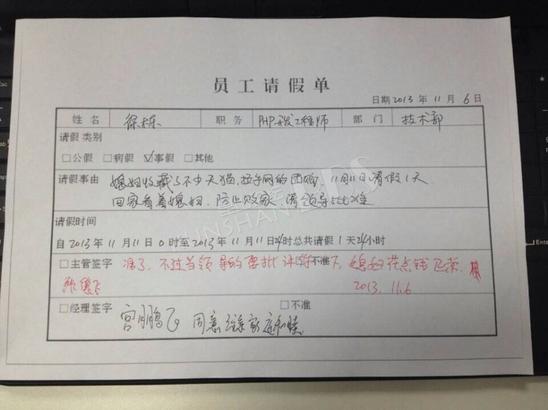 员工请假单
日期 2013 年 11 月 6 日
姓名 徐栋 职务 PHP开发工程师 部门 技术部
请假 类别
□公假 □病假 ☑事假 □其他
请假事由 媳妇收藏了不少天猫,拉手网的团购,11月11日请假1天
回家看着媳妇,防止败家,请领导批准
请假时间
自 2013 年 11 月 11 日 0 时至 2013 年 11 月 11 日 24 时总共请假 1 天 24 小时
□主管签字 准了,不过当领导的要批评 □不准 媳妇花点钱
2013.11.6
□经理签字 □不准
宫鹏飞 同意 家庭和睦
INSHANTIPS